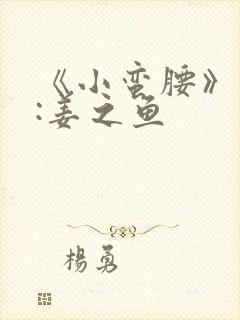 《小蛮腰》
:姜之鱼
楊勇